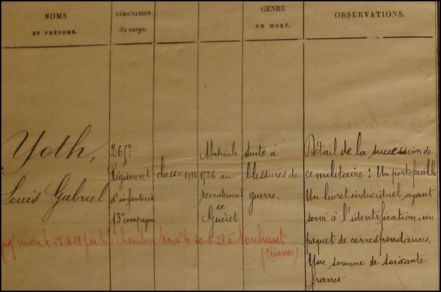 NOMS
ET PRÉNOMS.
DÉSIGNATION
du corps.
GENRE
DE MORT.
OBSERVATIONS.
Yoth,
Louis Gabriel
265e
Régiment
d'infanterie
13e compagnie
classe
Matricule
1726 au
recrutement
de
Guéret
suite à
blessures de
guerre.
Détail de la succession de
ce militaire : Un portefeuille
Un livret individuel ayant
servi à l'identification, un
paquet de correspondances.
Une somme de soixante
francs
Chambon
à Nouhant
(Creuse)